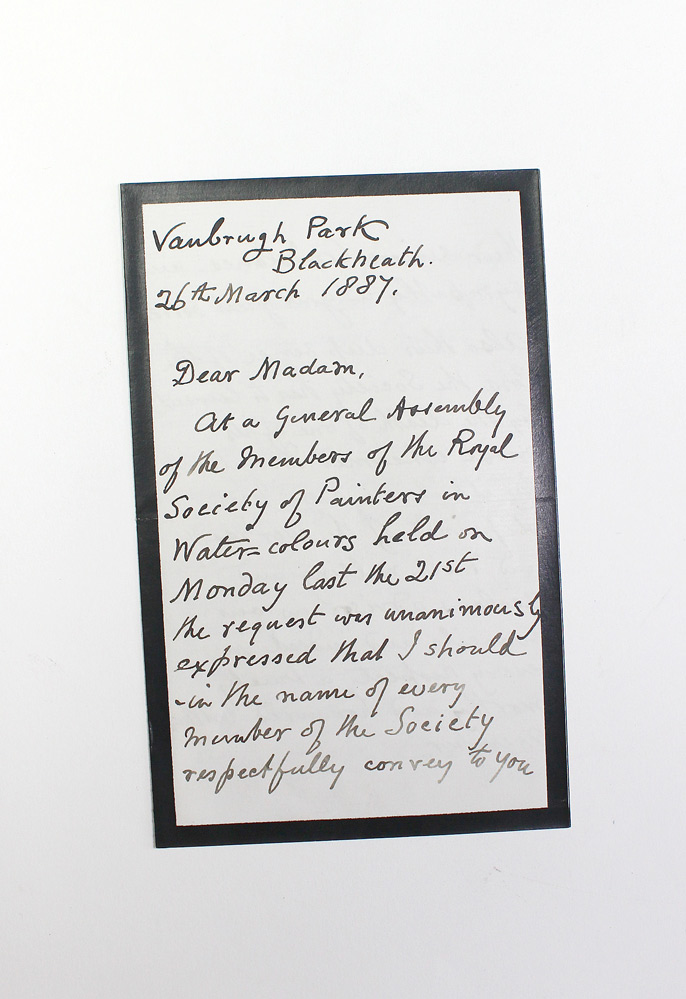 Vanbrugh Park
Blackheath.
26th March 1887.
Dear Madam,
At a General Assembly
of the Members of the Royal
Society of Painters in
Water=colours held on
Monday last the 21st
the request was unanimously
expressed that I should
-in the name of every
Member of the Society
respectfully convey to you